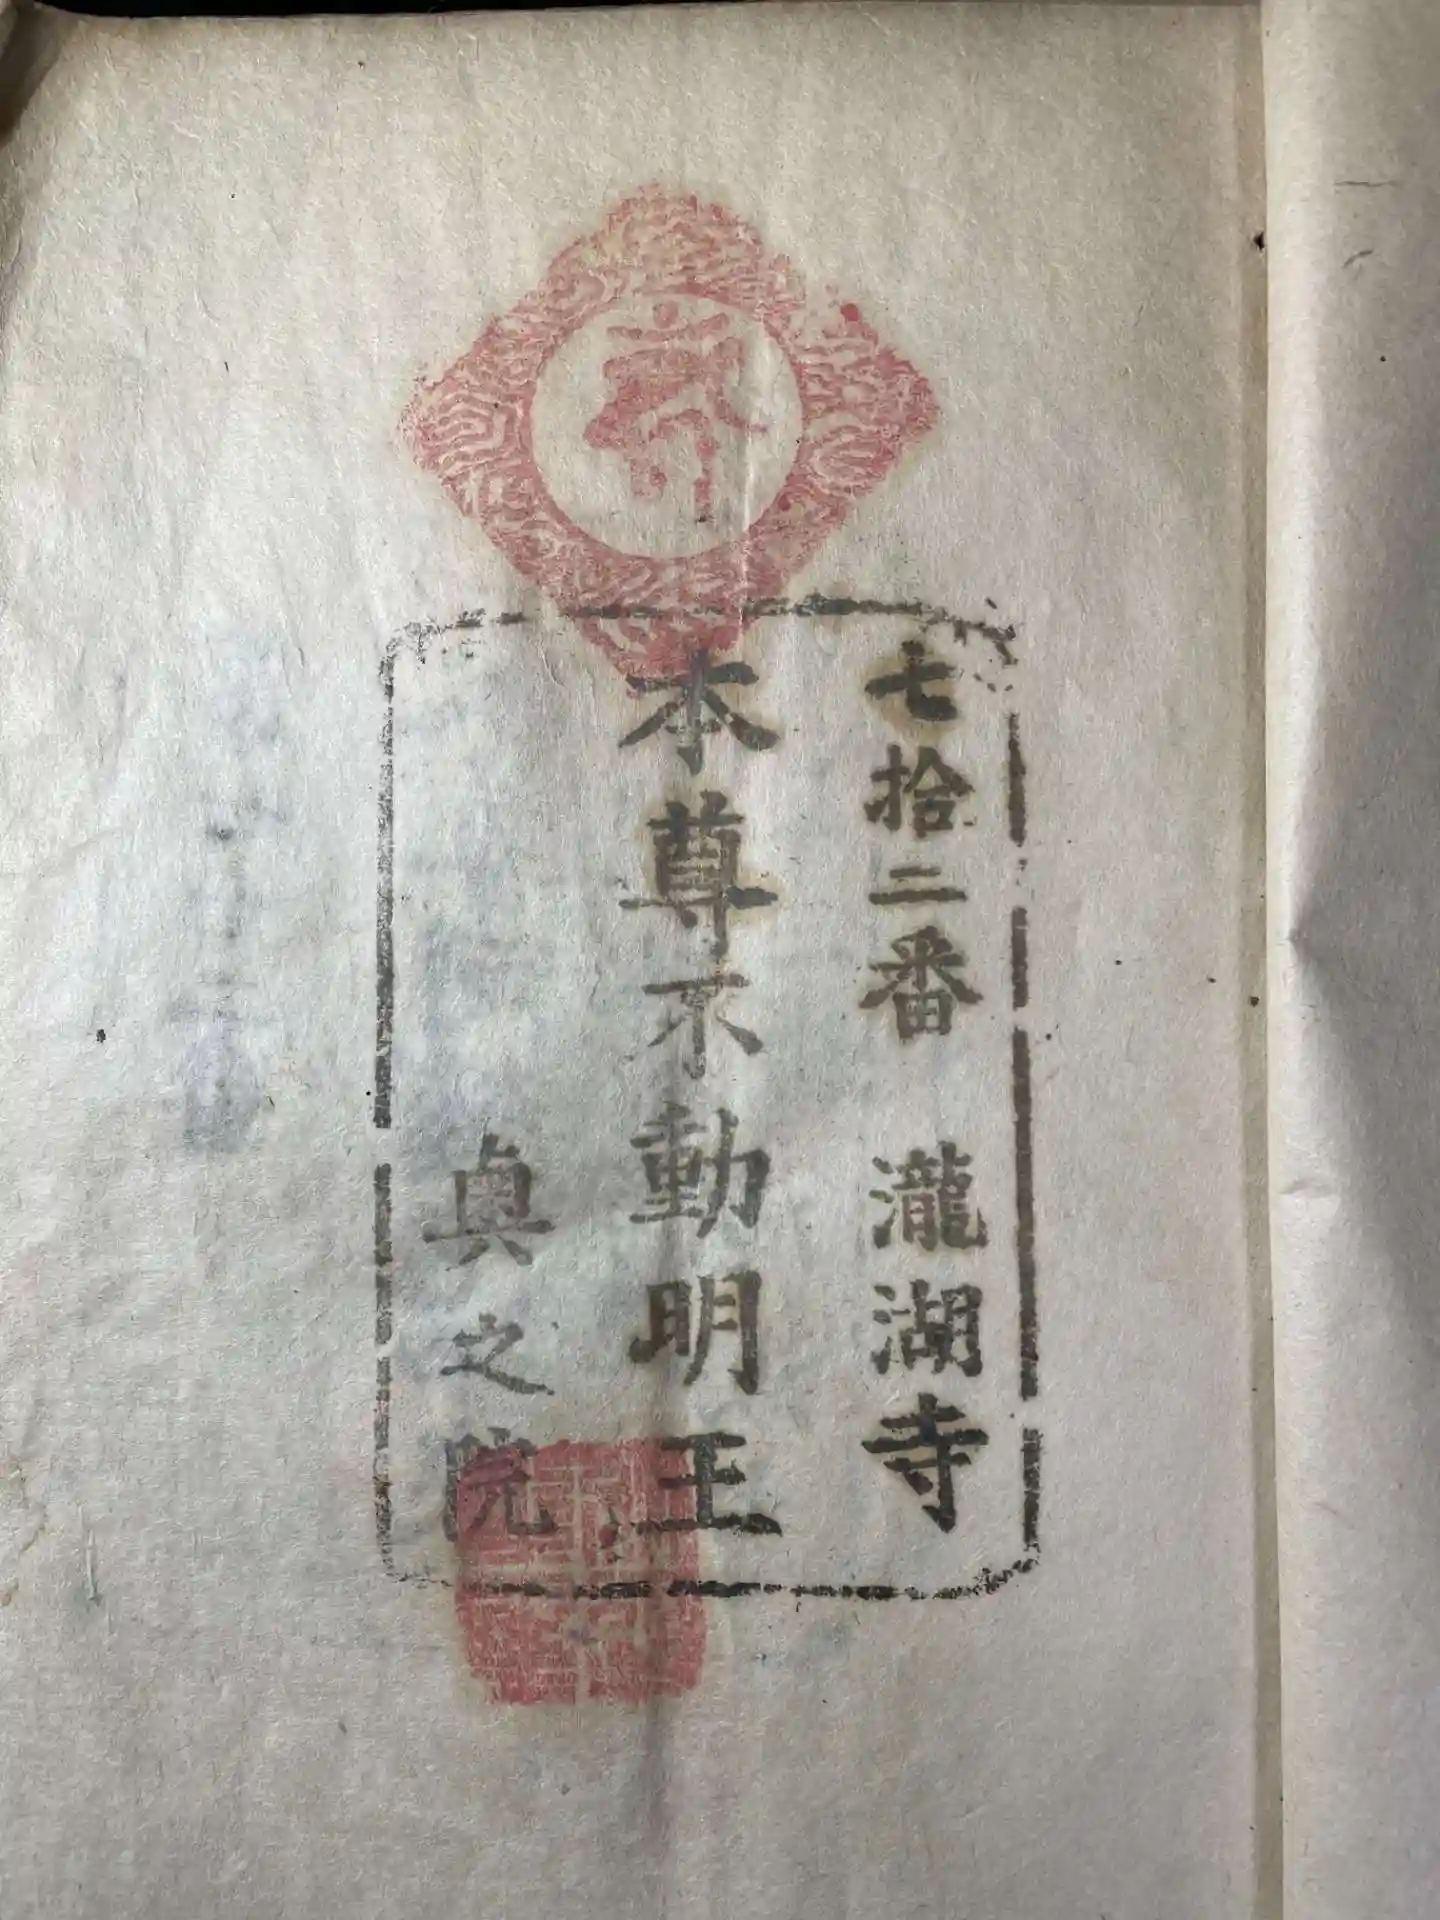 七拾二番 瀧湖寺
本尊不動明王
貞之院